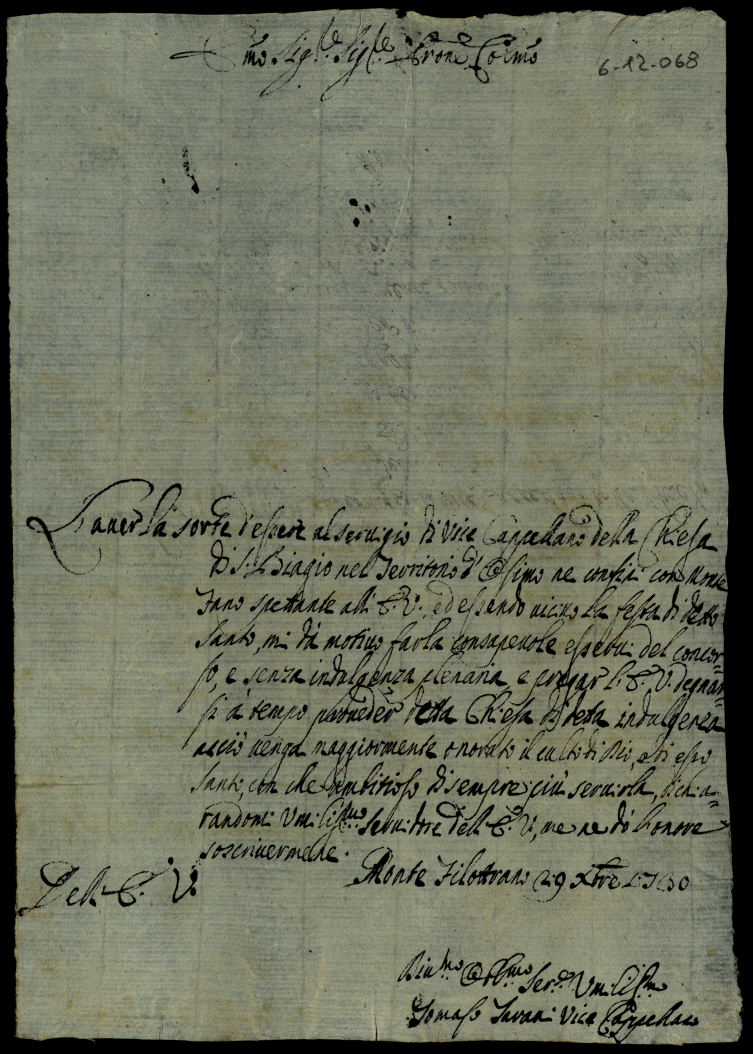 Emo Sig.re Sig.re Prone Colmo
6-12-068
L'auer la sorte d'essere al seruigio di Vice Cappellano della Chiesa
di S. Biagio nel Territorio d'Osimo ne confini con Monte
Fano spettante all'E.V., ed essendo uicino la festa di detto
Santo, mi dà motiuo farla consapeuole esserui del concor-
so, e senza indulgenza plenaria, e pregar l'E.V. degnar-
si à tempo proueder detta Chiesa di detta indulgenza
acciò uenga maggiormente onorato il culto di Dio, e di esso
Santo, con che ambitioso di sempre più seruirla, dichia-
randomi Vmilissmo seruidore dell'E.V., me ne dò l'onore
soscriuermene.
Dell'E.V.
Monte Filottrano 29 Xbre 1730
Diumo Obbmo Ser.e Vmilissmo
Tomaso Vice Cappellano